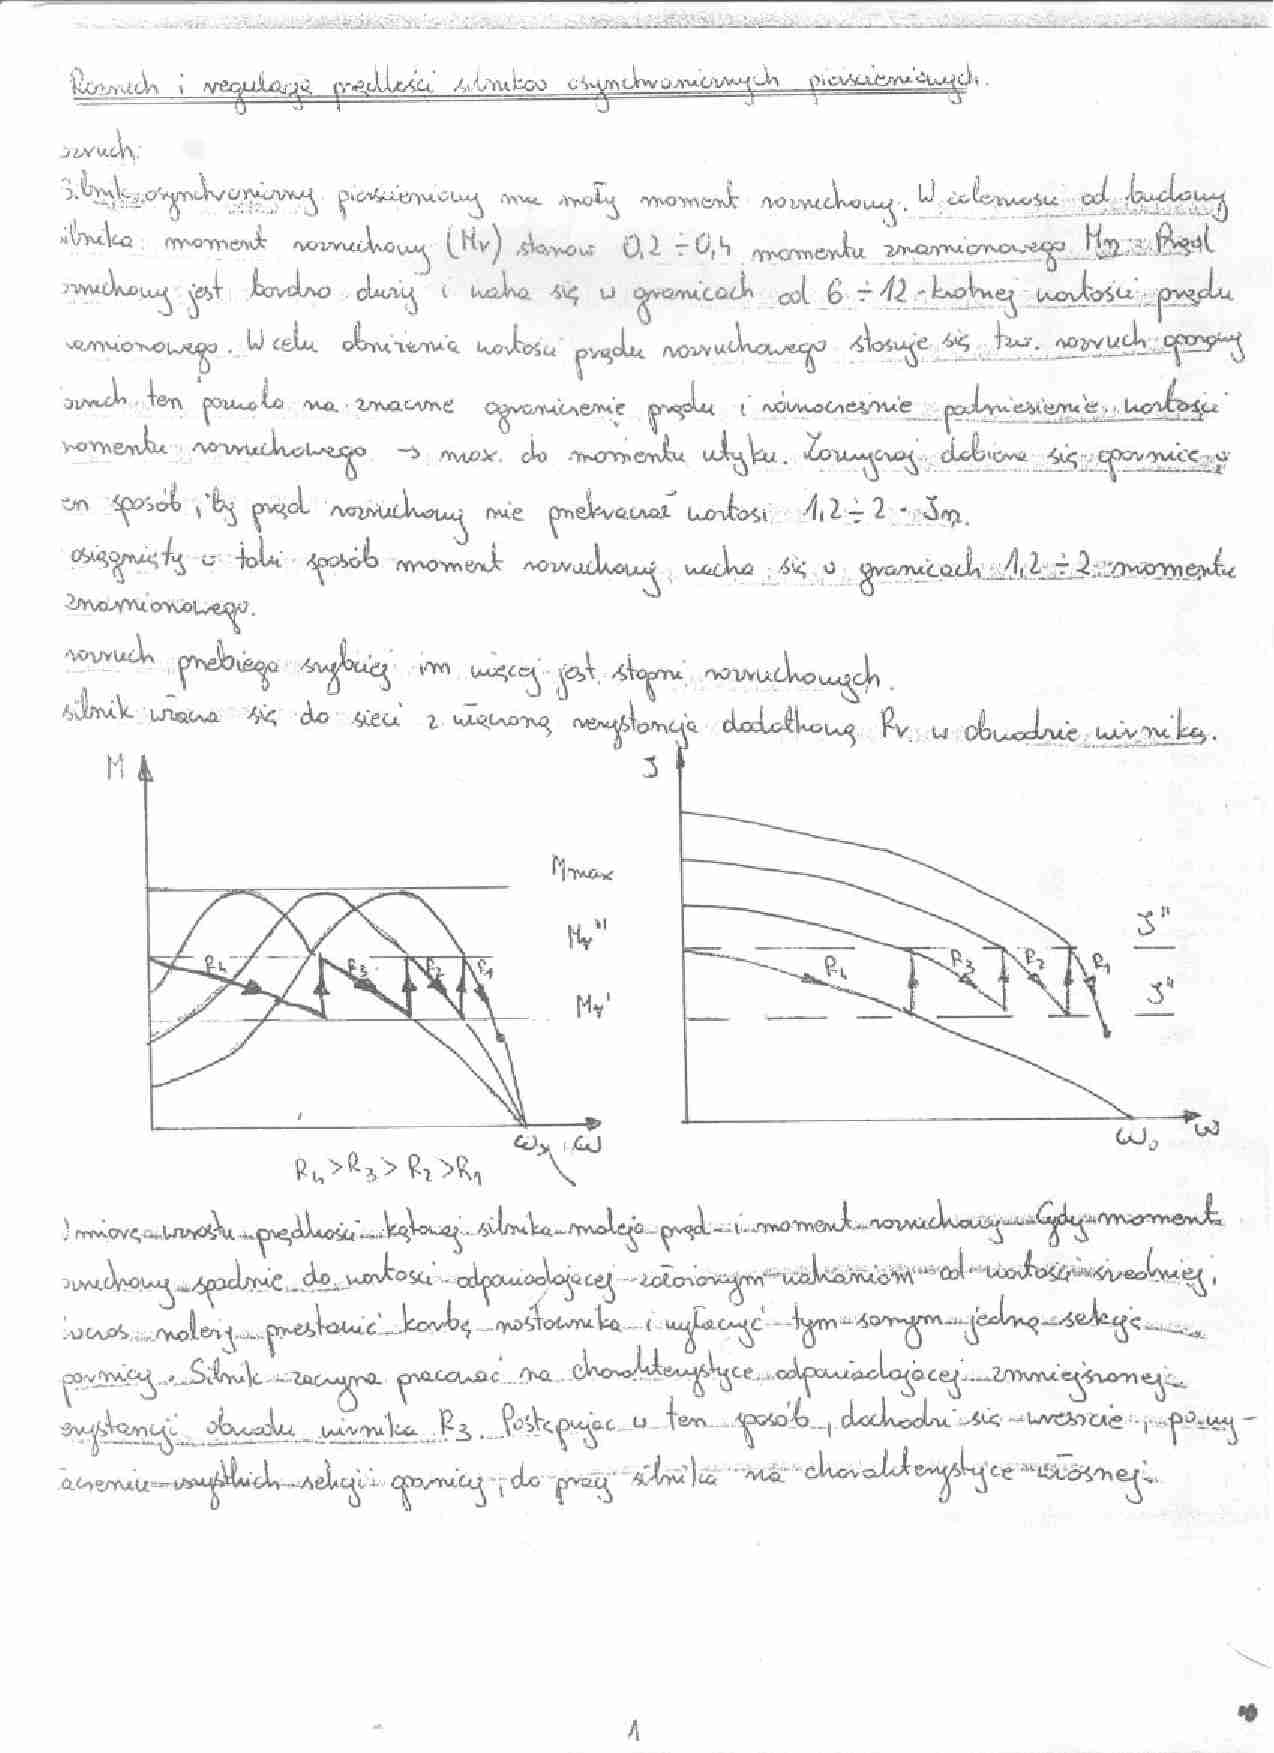 Rozruch i regulacja prędkości silników asynchronicznych pierścieniowych.
ozruch:
Silnik asynchroniczny pierścieniowy ma mały moment rozruchowy. W zależności od budowy
silnika moment rozruchowy (Mr) stanowi 0,2 ÷ 0,4 momentu znamionowego Mn. Prąd
ozruchowy jest bardzo duży i waha się w granicach od 6 ÷ 12-krotnej wartości prądu
znamionowego. W celu obniżenia wartości prądu rozruchowego stosuje się tzw. rozruch oporowy
ozruch ten pozwala na znaczne ograniczenie prądu i równocześnie podniesienie wartości
momentu rozruchowego → max. do momentu utyku. Zazwyczaj dobiera się opornice w
en sposób, by prąd rozruchowy nie przekraczał wartości 1,2 ÷ 2 · Jn.
osiągnięty w taki sposób moment rozruchowy waha się w granicach 1,2 ÷ 2 momentu
znamionowego.
rozruch przebiega szybciej im więcej jest stopni rozruchowych.
silnik włącza się do sieci z włączoną rezystancją dodatkową Rr w obwodzie wirnika.
M J
Mmax
Mr" J"
R4 R3 R2 R1 R4 R3 R2 R1
Mr' J"
ω ω₀ ω
R4 > R3 > R2 > R1
miarę wzrostu prędkości kątowej silnika maleje prąd i moment rozruchowy. Gdy moment
ozruchowy spadnie do wartości odpowiadającej założonym wahaniom od wartości średniej,
wczas należy przestawić korbę rozrusznika i wyłączyć tym samym jedną sekcję
opornicy. Silnik zaczyna pracować na charakterystyce odpowiadającej zmniejszonej
ezystancji obwodu wirnika R3. Postępując w ten sposób, dochodzi się wreszcie, po wy-
ączeniu wszystkich sekcji opornicy, do pracy silnika na charakterystyce własnej.
1